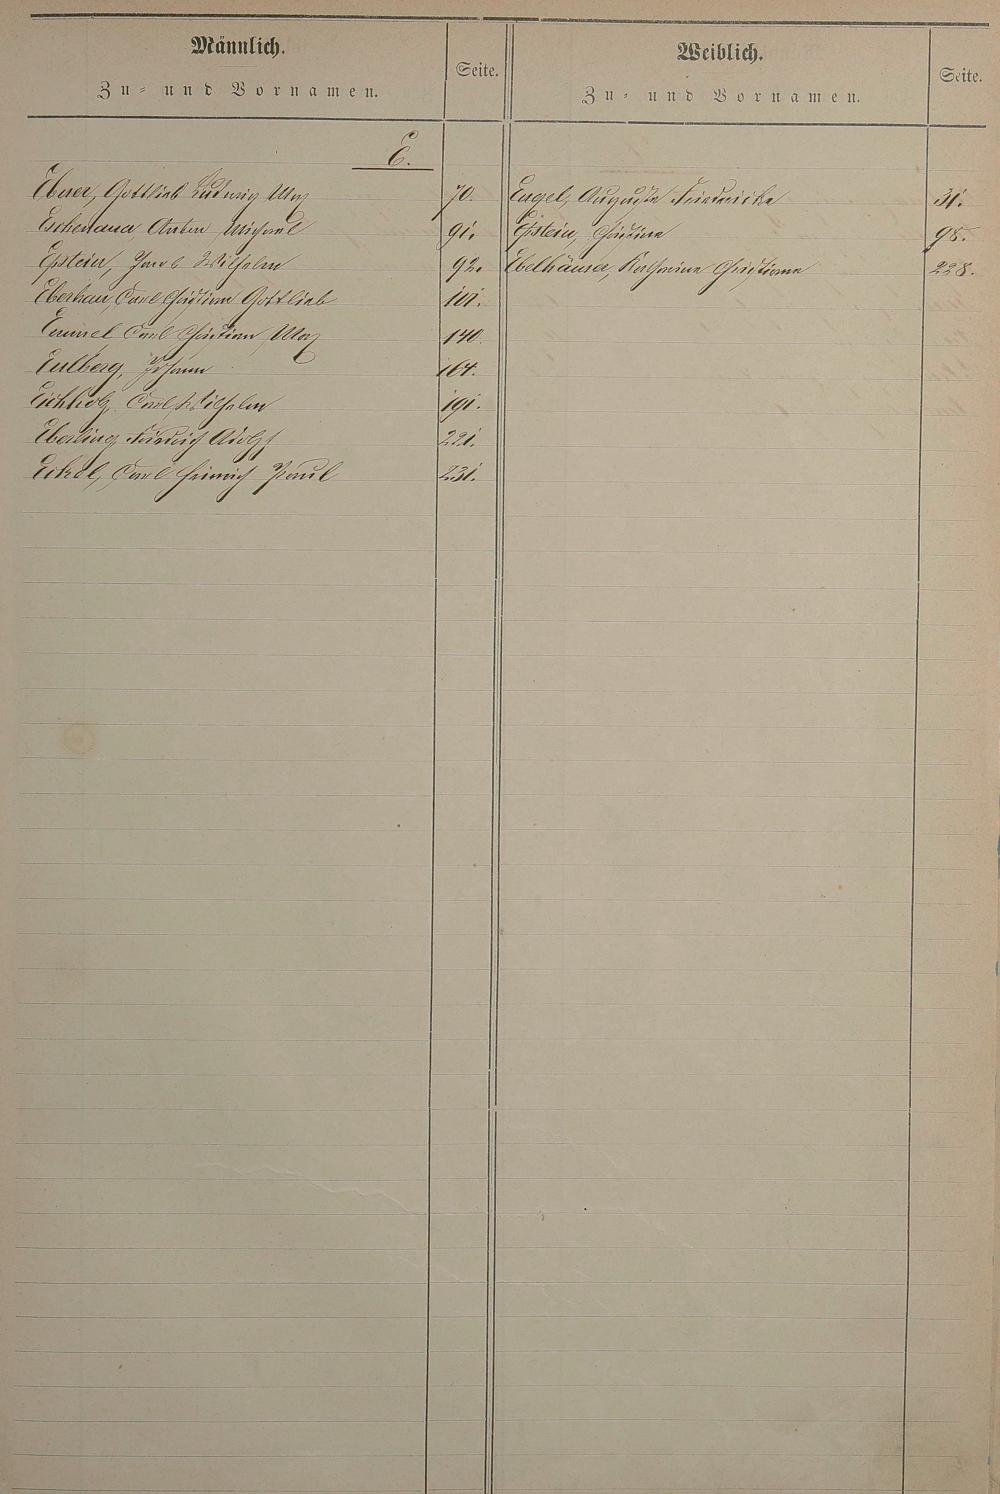 Männlich.
Zu- und Vornamen.
Seite.
Weiblich.
Zu- und Vornamen.
Seite.
E.
Ebner, Gottlieb Ludwig Max 70.
Eschenauer, Anton Michael 91.
Epstein, Jacob Wilhelm 92.
Carl Christian Gottlieb 101.
Carl Christian Max 140.
Eulberg, Johann 164.
Eichholz, Carl Wilhelm 191.
Eberling, Friedrich Adolf 221.
Eckel, Carl Heinrich Paul 231.
Engel, Auguste Friederike 31.
Epstein, Christine 98.
Ebelhäuser, Katharine Christiane 228.